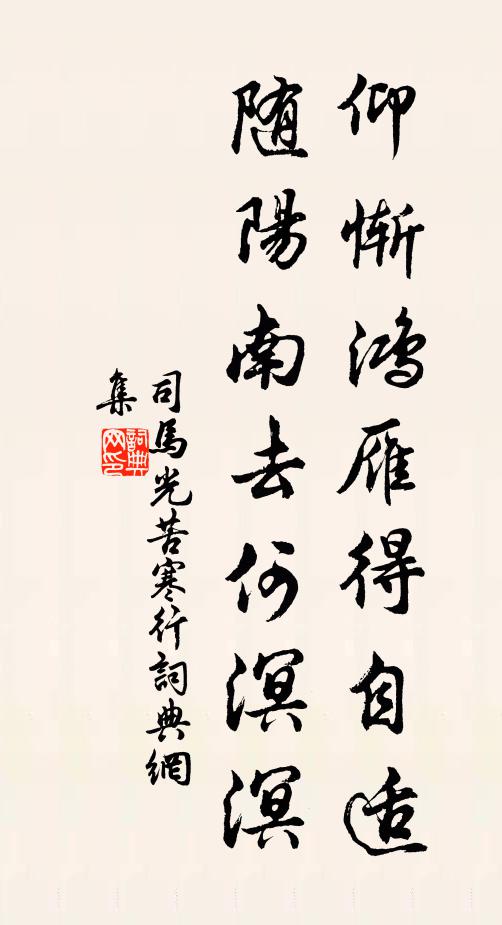 仰惭鸿雁得自适
随陽南去何溟溟
司馬光苦寒行詞典網
集
詞典
网印